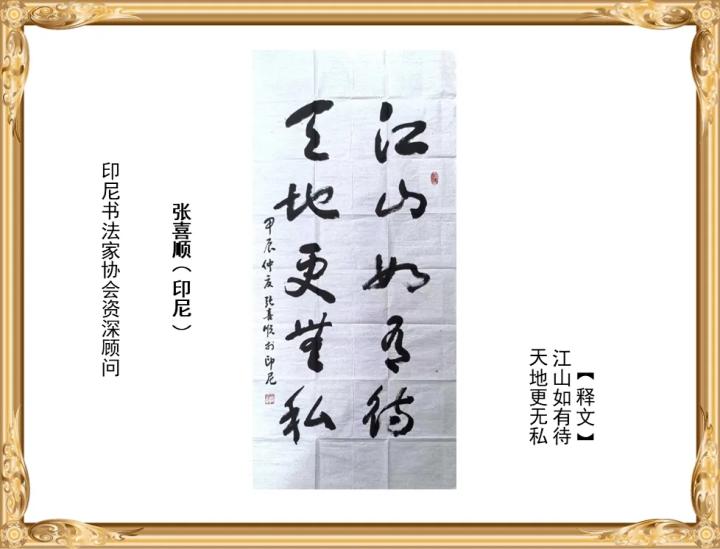 【释文】
江山如有待
天地更无私
江山如有待
天地更無私
甲辰仲夏张喜顺於印尼
张喜顺（印尼）
印尼书法家协会资深顾问